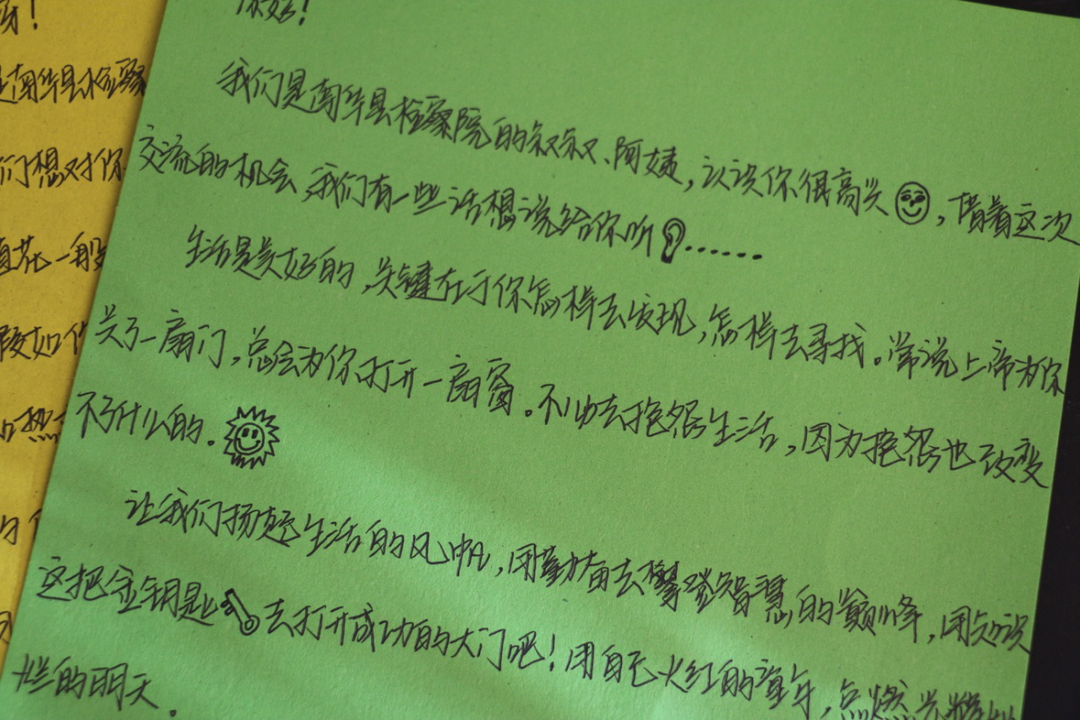 你好!
我们是南华县检察院的叔叔、阿姨,认识你很高兴,借着这次
交流的机会,我们有一些话想说给你听……
生活是美好的,关键在于你怎样去发现,怎样去寻找。常说上帝为你
关了一扇门,总会为你打开一扇窗。不必去抱怨生活,因为抱怨也改变
不了什么的。
让我们扬起生活的风帆,用勤奋去攀登智慧的巅峰,用知识
这把金钥匙去打开成功的大门吧!用自己火红的童年,点燃光辉灿
烂的明天。
是南华县检察
们想对你
花一般
假如你
的热